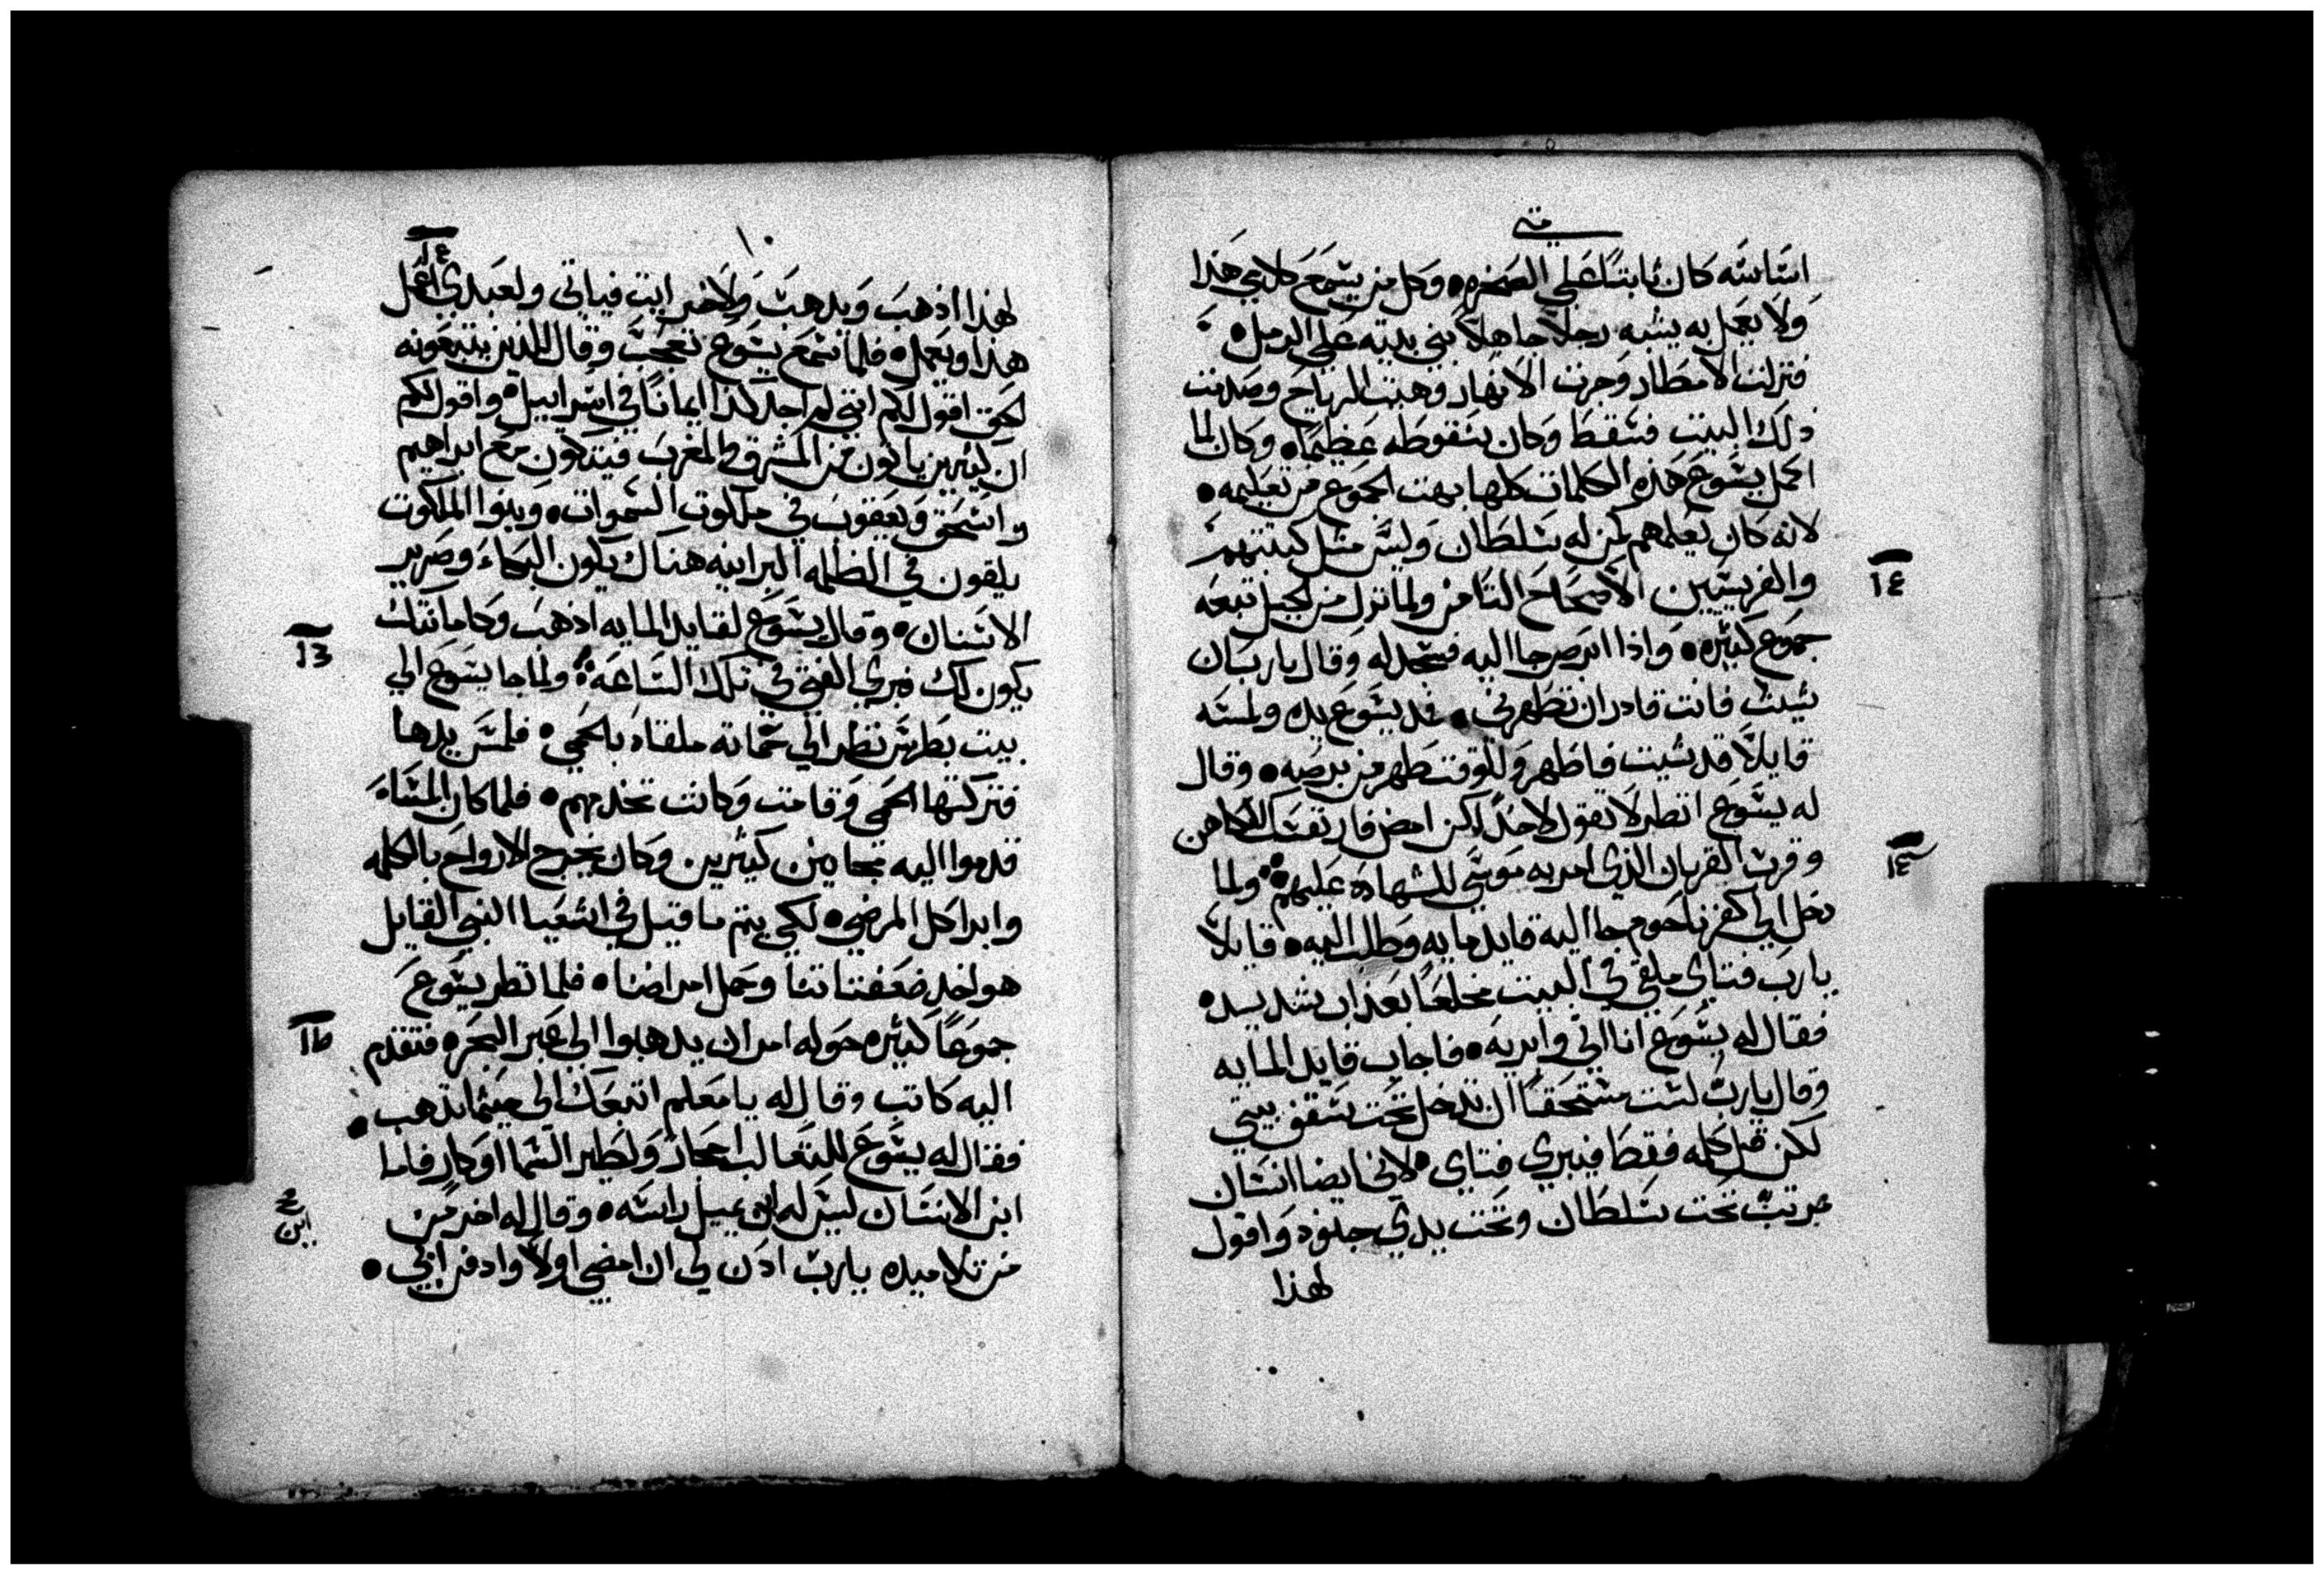 متي
اساسه كان ثابتًا علي الصخره • وكل من يسمع كلامي هذا
ولا يعمل به يشبه رجلًا جاهلًا بني بيته علي الرمل •
فنزلت الامطار وجرت الانهار وهبت الرياح وصدمت
ذلك البيت فسقط وكان سقوطه عظيمًا • وكان لما
اكمل يسوع هذه الكلمات كلها بهت الجموع من تعليمه •
لانه كان يعلمهم كمن له سلطان وليس مثل كتبتهم
والفريسيين الاصحاح الثامن ولما نزل من الجبل تبعه
جموع كثيره • واذا ابرص جا اليه فسجد له وقال يارب ان
شيت فانت قادر ان تطهرني • فمد يسوع يده ولمسه
قايلًا قد شيت فاطهر وللوقت طهر من برصه • وقال
له يسوع انظر لا تقول لاحد لكن امض فار نفسك للكاهن
وقرب القربان الذي امر به موسي للشهاده عليهم ولما
دخل الي كفرناحوم جا اليه قايد مايه وطلب اليه • قايلًا
يارب فتاي ملقي في البيت مخلعًا بعذاب شديد •
فقال له يسوع انا اتي وابريه • فاجاب قايد المايه
وقال يارب لست مستحقًا ان تدخل تحت سقف بيتي
لكن قل كلمه فقط فيبري فتاي • لاني ايضا انسان
مرتب تحت سلطان وتحت يدي جنود واقول
لهذا
١٠
لهذا اذهب ويذهب ولاخر ايت فياتي ولعبدي اعمل
هذا ويعمل • فلما سمع يسوع تعجب وقال للذين يتبعونه
الحق اقول لكم انني لم اجد كذا ايمانًا في اسراييل • واقول لكم
ان كثيرين ياتون من المشرق والمغرب فيتكون مع ابراهيم
واسحق ويعقوب في ملكوت السموات • وبنوا الملكوت
يلقون في الظلمه البرانيه هناك يكون البكاء وصرير
الاسنان • وقال يسوع لقايد المايه اذهب وكامانتك
يكون لك فبري الفتي في تلك الساعه ولما جا يسوع الي
بيت بطرس نظر الي حماته ملقاه بالحمي • فلمس يدها
فتركتها الحمي وقامت وكانت تخدمهم • فلما كان المساء
قدموا اليه مجانين كثيرين وكان يخرج الارواح بالكلمه
وابرا كل المرضي • لكي يتم ما قيل في اشعيا النبي القايل
هو اخذ ضعفتاتنا وحمل امراضنا • فلما نظر يسوع
جموعًا كثيره حوله امر ان يذهبوا الي عبر البحره فتقدم
اليه كاتب وقال له يا معلم اتبعك الي حيثما تذهب •
فقال له يسوع للثعالب احجار ولطير السما اوكار فاما
ابن الانسان ليس له اين يميل راسه • وقال له اخر من
من تلاميده يارب ادن لي ان امضي اولًا وادفن ابي •